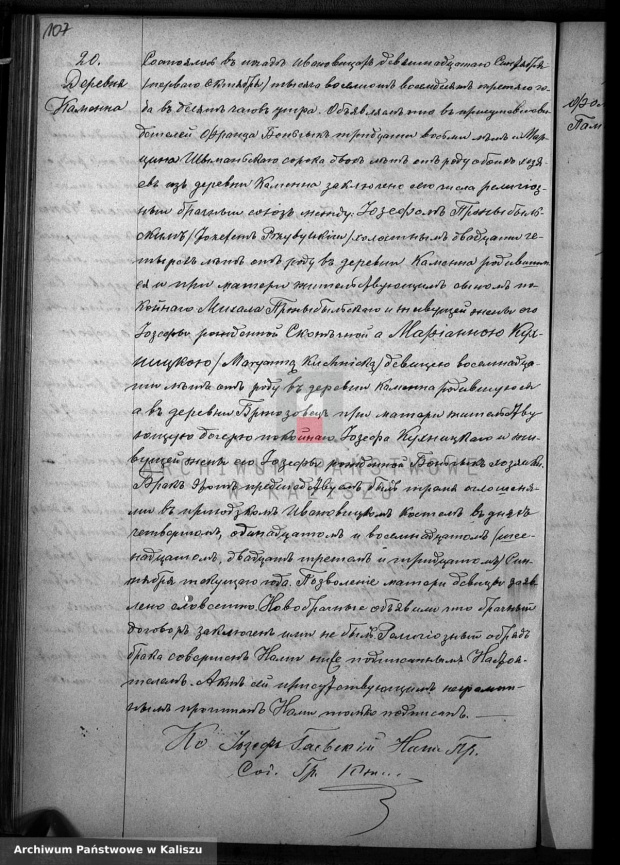 107
20.
Деревня
Каменка
Состоялось въ посадѣ Ивановицахъ девятнадцатаго Сентября
/перваго Октября/ тысяча восемьсотъ восемьдесятъ третьяго го-
да въ десять часовъ утра. Объявляемъ что въ присутствіи сви-
дѣтелей Франца тридцати восьми лѣтъ и Мар-
цина сорока двухъ лѣтъ отъ роду обоихъ хозя-
евъ изъ деревни Каменка заключенъ сего числа религіоз-
ный брачный союзъ между: Іозефомъ
/Józefem/ холостымъ двадцати че-
тырехъ лѣтъ отъ роду въ деревни Каменка родившим-
ся и при матери жительствующимъ сыномъ по-
койнаго Михала и живущей жены его
Іозефы рожденной а Маріанною Кух-
ницкою /Maryanną Kuchnicką/ девицею восемнадца-
ти лѣтъ отъ роду въ деревни Каменка родившеюся
а въ деревни при матери жительству-
ющею дочерью покойнаго Іозефа Кухницкаго и жи-
вущей жены его Іозефы рожденной
Бракъ этотъ предшествовали три оглашенія
въ приходскомъ Ивановицкомъ Костелѣ въ дняхъ
четвертомъ, одинадцатомъ и восемнадцатомъ /шест-
надцатомъ, двадцать третьемъ и тридцатомъ/ Сен-
тября текущаго года. Позволеніе матери девицы заяв-
лено словесно. Новобрачные объявили что брачный
договоръ заключенъ ими не былъ. Религіозный обрядъ
брака совершенъ Нами ниже подписаннымъ Настоя-
телемъ. Актъ сей присутствующимъ неграмот-
нымъ прочитанъ Нами только подписанъ.
Кс Іозефъ Гаевскій Наст. Пр.
Сод. Гр.
ARCHIWUM PAŃSTWOWE
W KALISZU
Archiwum Państwowe w Kaliszu